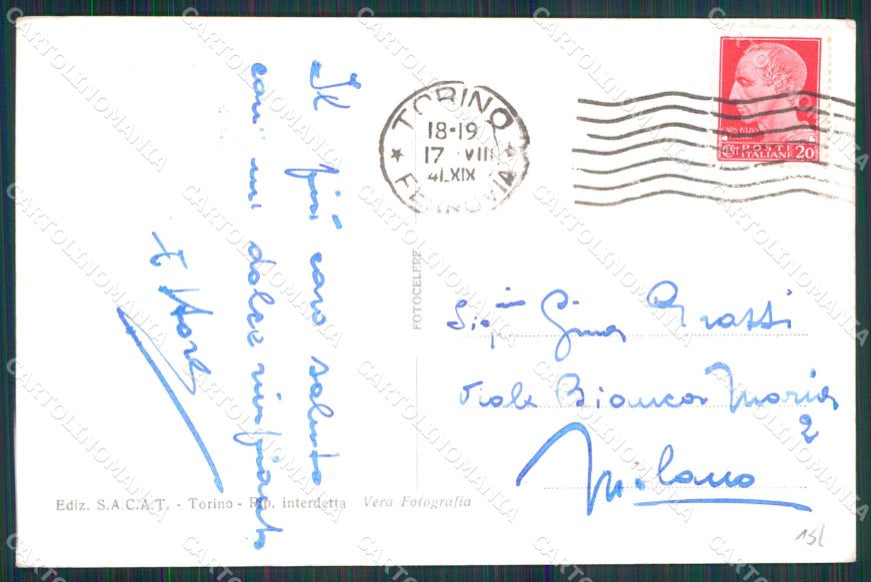 Il più caro saluto
con un dolce
TORINO
18-19
17 VIII
41.XIX
FERROVIA
POSTE
ITALIANE 20
FOTOCELERE
Sig.na Gina Grassi
Viale Bianca Maria
2
Milano
Ediz. S.A.C.A.T. - Torino - Rip. interdetta Vera Fotografia
151
CARTOLINOMANIA